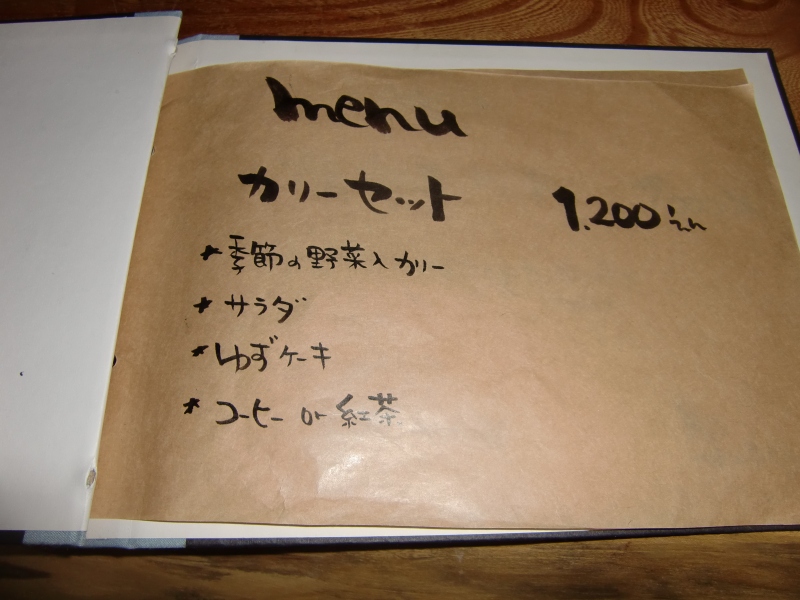 menu
カリーセット 1.200えん
* 季節の野菜入カリー
* サラダ
* ゆずケーキ
* コーヒー or 紅茶